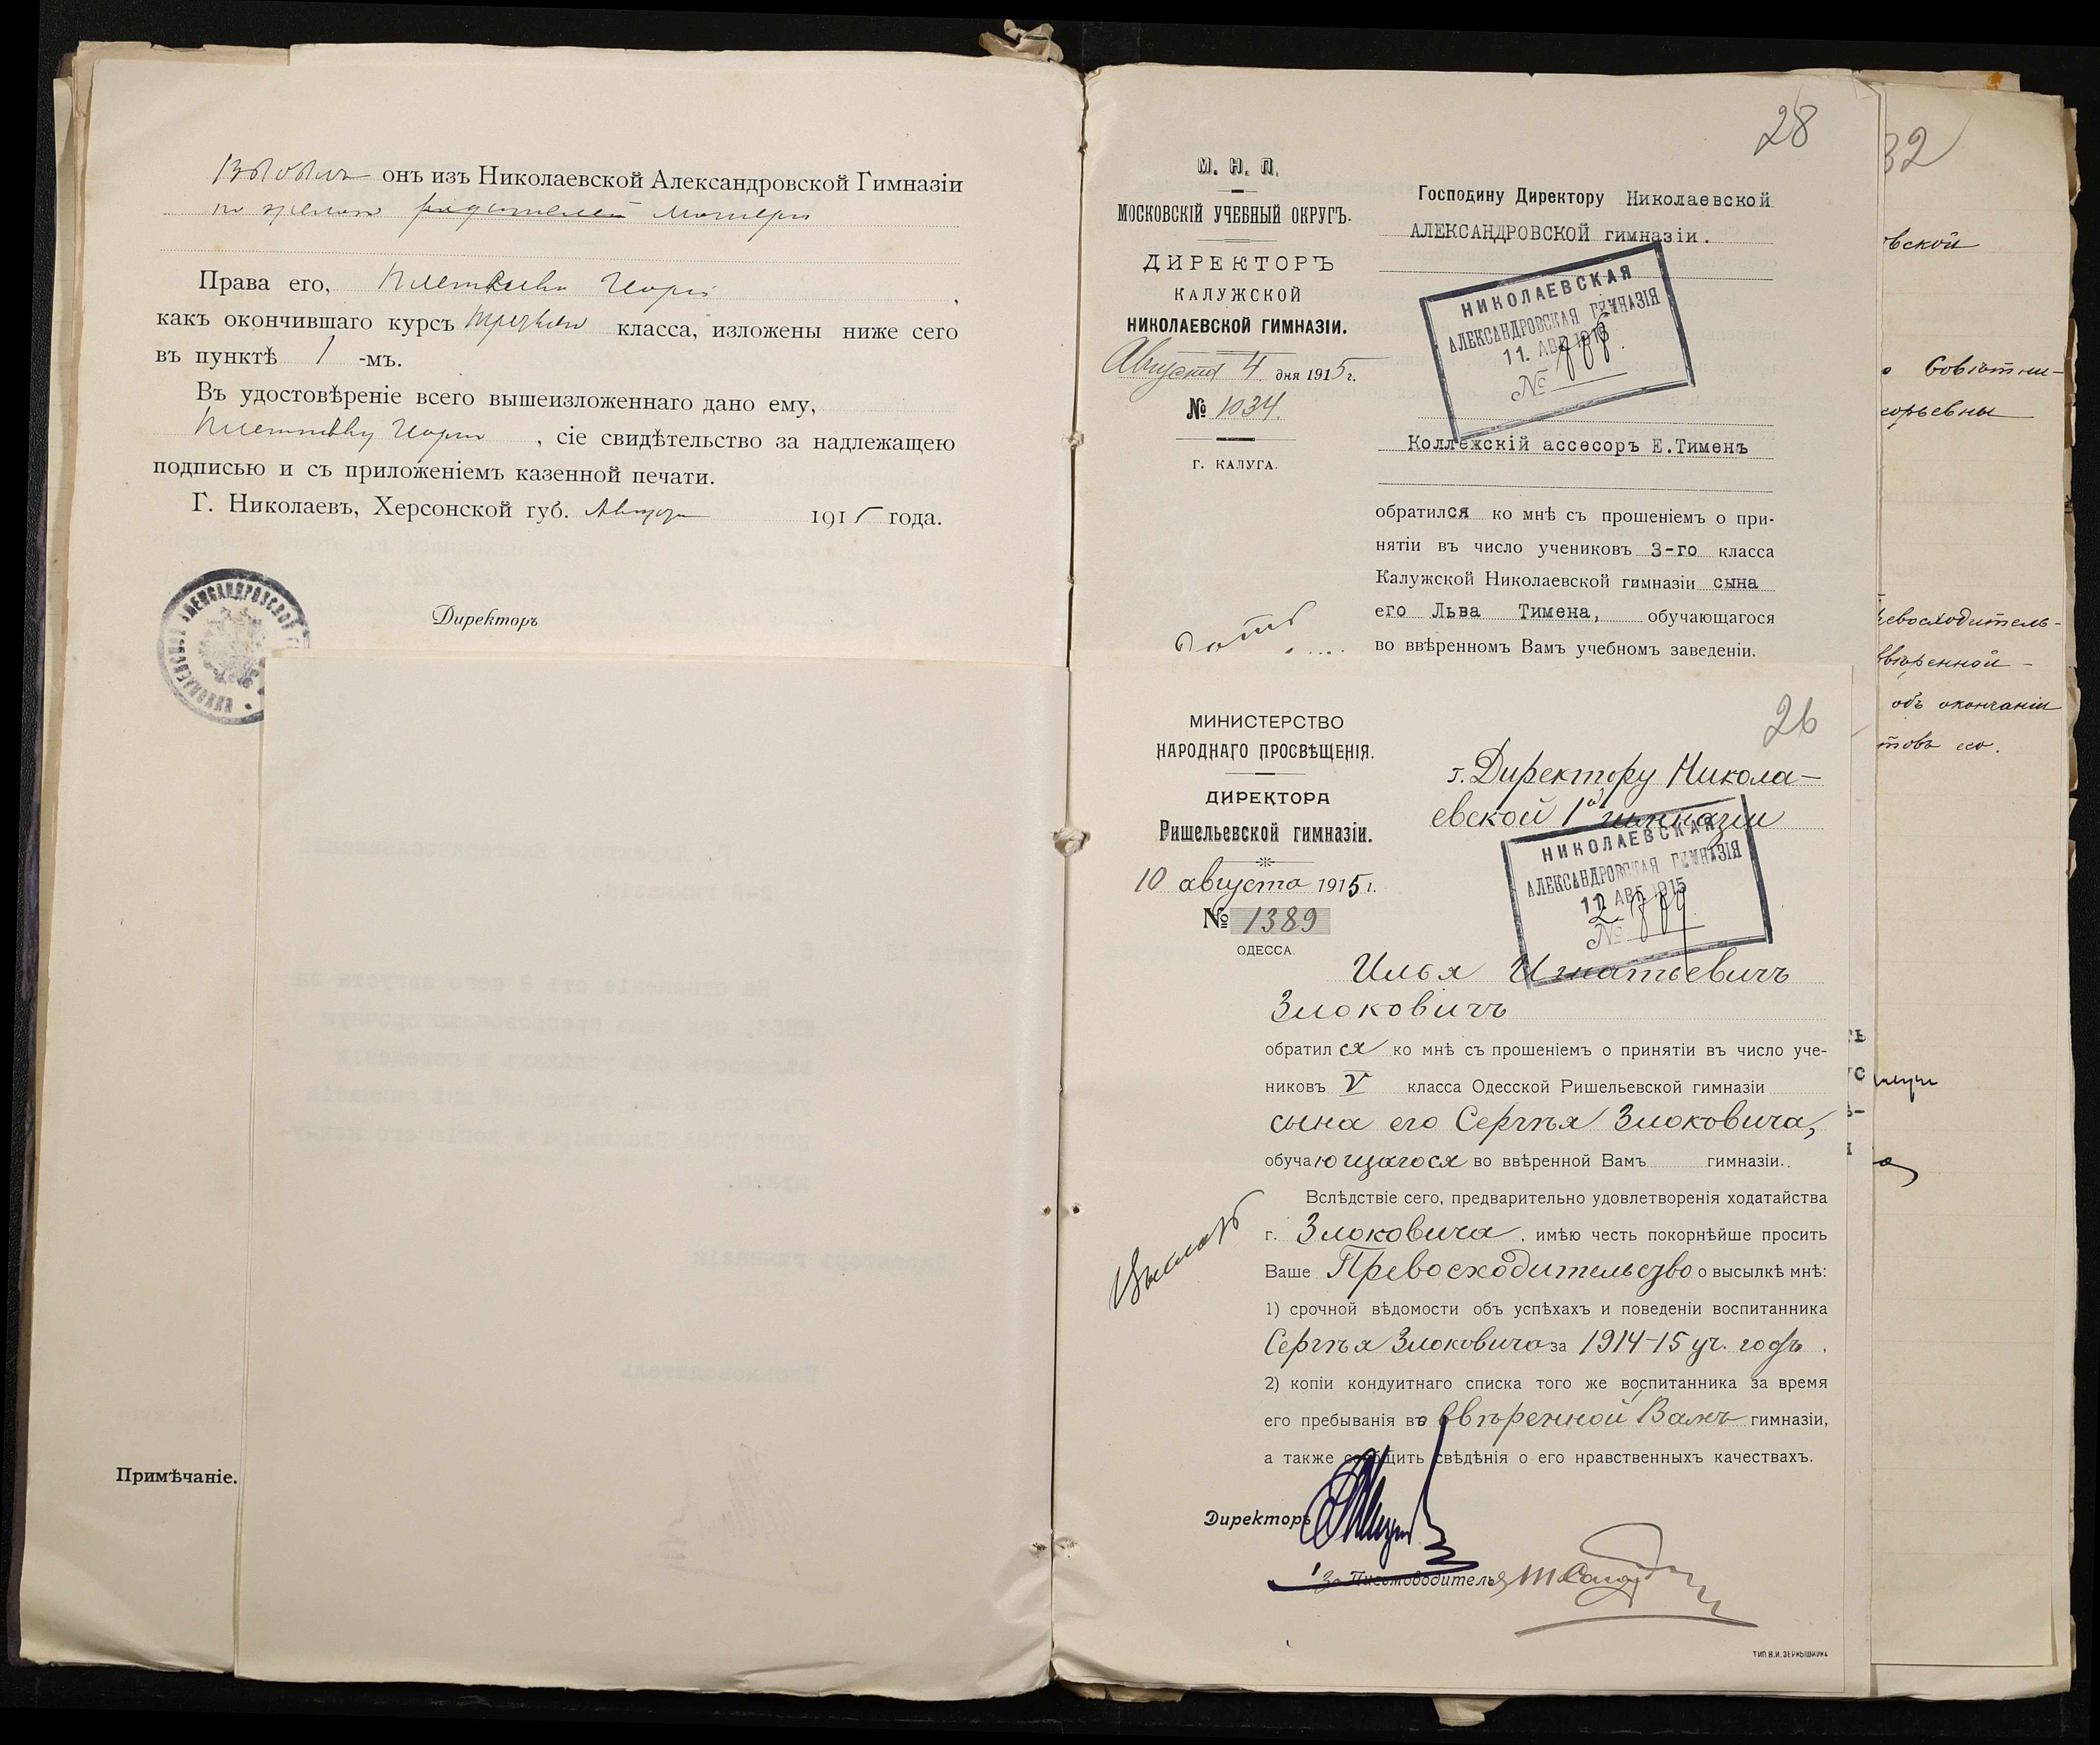 выбылъ онъ изъ Николаевской Александровской Гимназіи
по прошен родителей матери
Права его, Игоря
какъ окончившаго курсъ третьяго класса, изложены ниже сего
въ пунктѣ 1 -мъ.
Въ удостовѣреніе всего вышеизложеннаго дано ему,
Игорю, сіе свидѣтельство за надлежащею
подписью и съ приложеніемъ казенной печати.
Г. Николаевъ, Херсонской губ. Августа 1915 года.
Директоръ
Примѣчаніе.
28
М. Н. П.
МОСКОВСКІЙ УЧЕБНЫЙ ОКРУГЪ.
ДИРЕКТОРЪ
КАЛУЖСКОЙ
НИКОЛАЕВСКОЙ ГИМНАЗІИ.
Августа 4 дня 1915 г.
№ 1034.
Г. КАЛУГА.
Господину Директору Николаевской
АЛЕКСАНДРОВСКОЙ гимназіи.
НИКОЛАЕВСКАЯ
АЛЕКСАНДРОВСКАЯ ГИМНАЗІЯ
11. АВГ. 1915
№
Коллежскій ассесоръ Е.Тименъ
обратился ко мнѣ съ прошеніемъ о при-
нятіи въ число учениковъ 3-го класса
Калужской Николаевской гимназіи сына
его Льва Тимена, обучающагося
во ввѣренномъ Вамъ учебномъ заведеніи.
26
МИНИСТЕРСТВО
НАРОДНАГО ПРОСВѢЩЕНІЯ.
ДИРЕКТОРА
Ришельевской гимназіи.
10 августа 1915 г.
№ 1389
ОДЕССА.
г. Директору Никола-
евской 1й гимназіи
НИКОЛАЕВСКАЯ
АЛЕКСАНДРОВСКАЯ ГИМНАЗІЯ
12 АВГ. 1915
№ 889
Илья Игнатьевичъ
Злоковичъ
обратился ко мнѣ съ прошеніемъ о принятіи въ число уче-
никовъ V класса Одесской Ришельевской гимназіи
сына его Сергѣя Злоковича,
обучающагося во ввѣренной Вамъ гимназіи.
Вслѣдствіе сего, предварительно удовлетворенія ходатайства
г. Злоковича, имѣю честь покорнѣйше просить
Ваше Превосходительство о высылкѣ мнѣ:
1) срочной вѣдомости объ успѣхахъ и поведеніи воспитанника
Сергѣя Злоковича за 1914-15 уч. годъ.
2) копіи кондуитнаго списка того же воспитанника за время
его пребыванія во ввѣренной Вамъ гимназіи,
а также сообщить свѣдѣнія о его нравственныхъ качествахъ.
Директоръ
За Письмоводителя
ТИП. В. И. ЗЕРНЫШКИНА
32
вской
о Совѣтни-
горьевны
ревосходитель-
ввѣренной
объ окончаніи
товъ его.